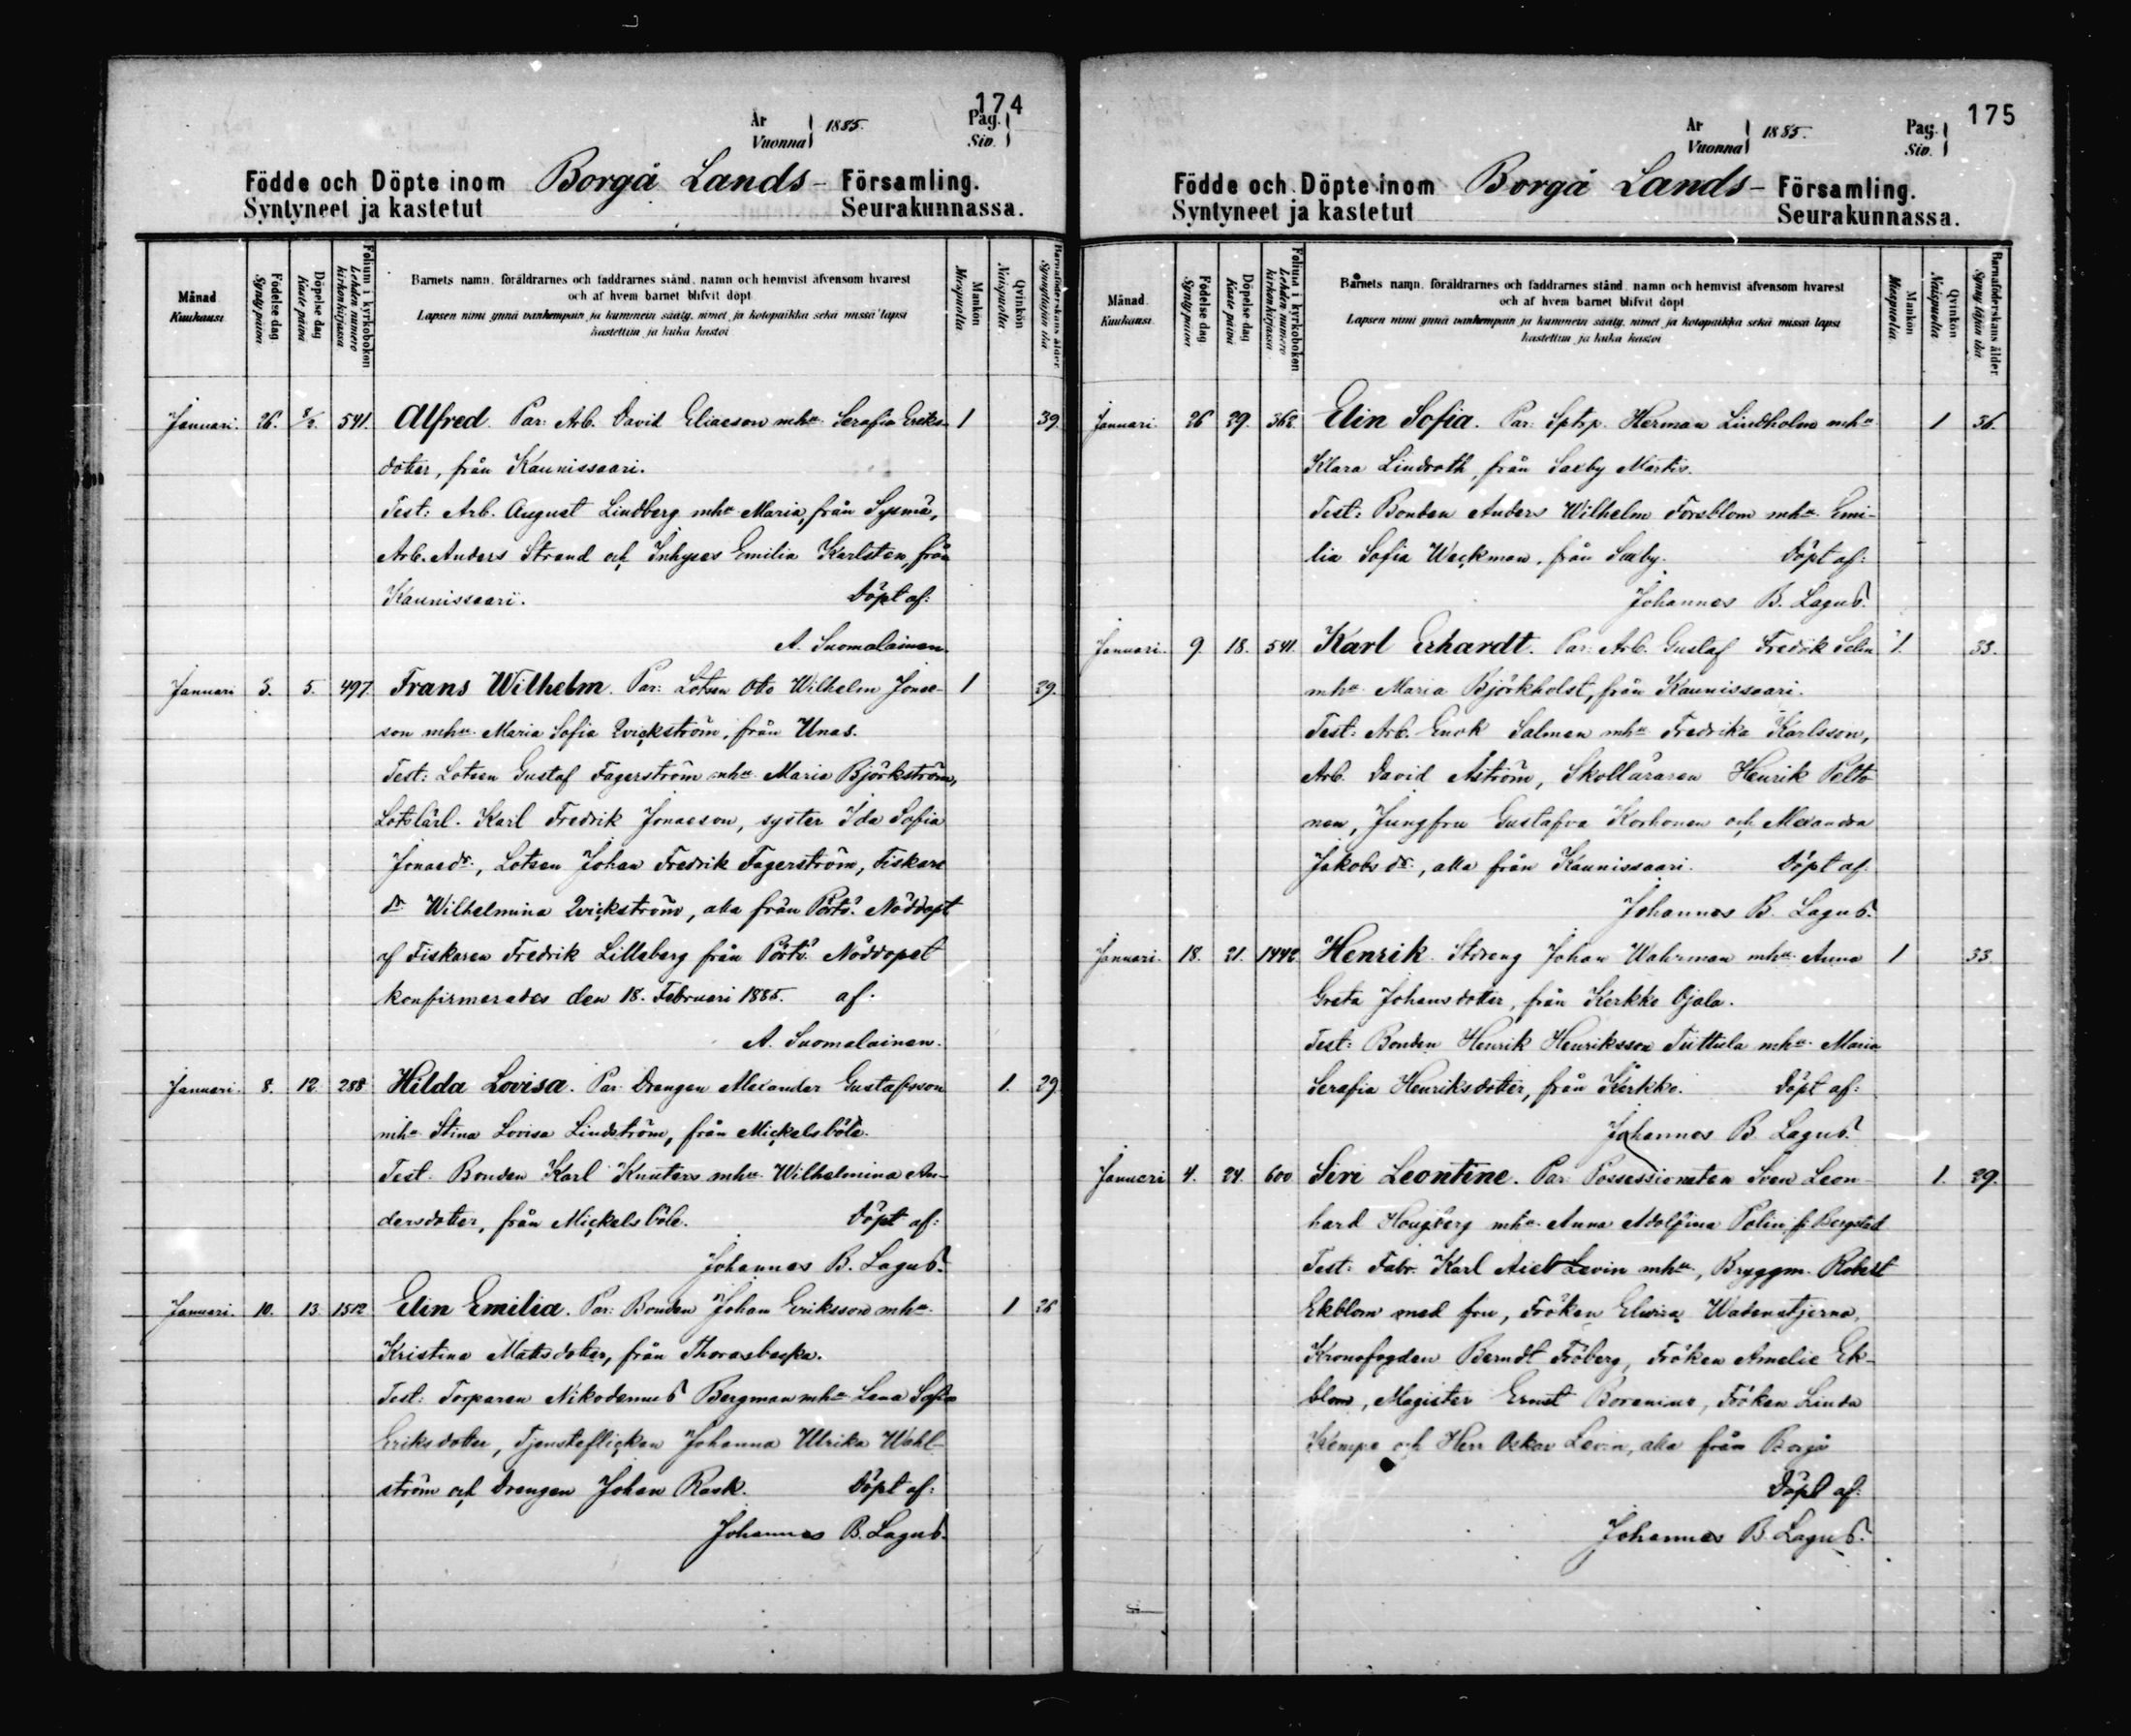 174
År
Vuonna
1885.
Pag.
Siv.
Födde och Döpte inom Borgå Lands- Församling.
Syntyneet ja kastetut Seurakunnassa.
Månad
Kuukausi
Födelse dag
Synty päivä
Döpelse dag
Kaste päivä
Folium i kyrkoboken
Lehden numero kirkonkirjassa
Barnets namn, föräldrarnes och faddrarnes stånd, namn och hemvist äfvensom hvarest
och af hvem barnet blifvit döpt
Lapsen nimi ynnä vanhempain ja kummein sääty, nimet ja kotopaikka sekä missä lapsi
kastettiin ja kuka kastoi
Mankön
Miespuolia
Qvinkön
Naispuolia
Barnaföderskans ålder
Synnyttäjän ikä
Januari. 26. 8/2. 541. Alfred. Par: Arb. David Eliaeson mhu Serafia Eriks- 1 39.
dotter, från Kaunissaari.
Test: Arb. August Lindberg mhu Maria, från Sysmä,
Arb. Anders Strand och Inhyses Emilia Karlsten, från
Kaunissaari. Döpt af:
A. Suomalainen.
Januari 3. 5. 497. Frans Wilhelm. Par: Lotsen Otto Wilhelm Jonae- 1 29.
son mhu Maria Sofia Qvickström, från Unas.
Test: Lotsen Gustaf Fagerström mhu Maria Björkström,
Lotslärl. Karl Fredrik Jonaeson, syster Ida Sofia
Jonaedr., Lotsen Johan Fredrik Fagerström, Fiskare
dr Wilhelmina Qvickström, alla från Pörtö. Nöddöpt
af Fiskaren Fredrik Lilleberg från Pörtö. Nöddopet
konfirmerades den 18. Februari 1885. af:
A. Suomalainen.
Januari. 8. 12. 288 Hilda Lovisa. Par: Drengen Alexander Gustafsson 1. 29.
mhu Stina Lovisa Lindström, från Mickelsböle.
Test. Bonden Karl Knuters mhu Wilhelmina An-
dersdotter, från Mickelsböle. Döpt af:
Johannes B. Lagus.
Januari. 10. 13. 1512. Elin Emilia. Par: Bonden Johan Eriksson mhu 1 26
Kristina Mattsdotter, från Thorasbacka.
Test: Torparen Nikodemus Bergman mhu Lena Sofia
Eriksdotter, Tjensteflickan Johanna Ulrika Wahl-
ström och Drengen Johan Rask. Döpt af:
Johannes B. Lagus.
175
År
Vuonna
1885.
Pag.
Siv.
Födde och Döpte inom Borgå Lands- Församling.
Syntyneet ja kastetut Seurakunnassa.
Månad
Kuukausi
Födelse dag
Synty päivä
Döpelse dag
Kaste päivä
Folium i kyrkoboken
Lehden numero kirkonkirjassa
Barnets namn, föräldrarnes och faddrarnes stånd, namn och hemvist äfvensom hvarest
och af hvem barnet blifvit döpt
Lapsen nimi ynnä vanhempain ja kummein sääty, nimet ja kotopaikka sekä missä lapsi
kastettiin ja kuka kastoi
Mankön
Miespuolia
Qvinkön
Naispuolia
Barnaföderskans ålder
Synnyttäjän ikä
Januari. 26 29. 368. Elin Sofia. Par: Sptrp. Herman Lindholm mhu 1 36.
Klara Lindroth, från Saxby Martis.
Test: Bonden Anders Wilhelm Forsblom mhu Emi-
lia Sofia Weckman, från Saxby. Döpt af:
Johannes B. Lagus.
Januari. 9. 18. 541. Karl Erhardt. Par: Arb. Gustaf Fredrik Selin 1. 33.
mhu Maria Björkholst, från Kaunissaari.
Test: Arb. Enok Salmen mhu Fredrika Karlsson,
Arb. David Åström, Skolläraren Henrik Pelto
nen, Jungfru Gustafva Korhonen och Alexandra
Jakobs dr., alla från Kaunissaari. Döpt af
Johannes B. Lagus.
Januari. 18. 21. 1442 Henrik. Stdreng Johan Wahrman mhu Anna 1 33.
Greta Johansdotter, från Kerkko Ojala.
Test: Bonden Henrik Henriksson Tuttula mhu Maria
Serafia Henriksdotter, från Kerkko. Döpt af:
Johannes B. Lagus.
Januari 4. 24. 600 Siri Leontine. Par: Possessionaten Sven Leon- 1. 29.
hard Hougberg mhu Anna Adolfina Polin, fr. Bergsted
Test: Fabr. Karl Levin mhu, Bryggm. Robert
Ekblom med fru, Fröken Elwira Wadenstjerna,
Kronofogden Berndt Fröberg, Fröken Amelie Ek-
blom, Magister Ernst Borenius, Fröken Linda
Kempe och Herr Oskar Levin, alla från Borgå
Döpt af:
Johannes B. Lagus.